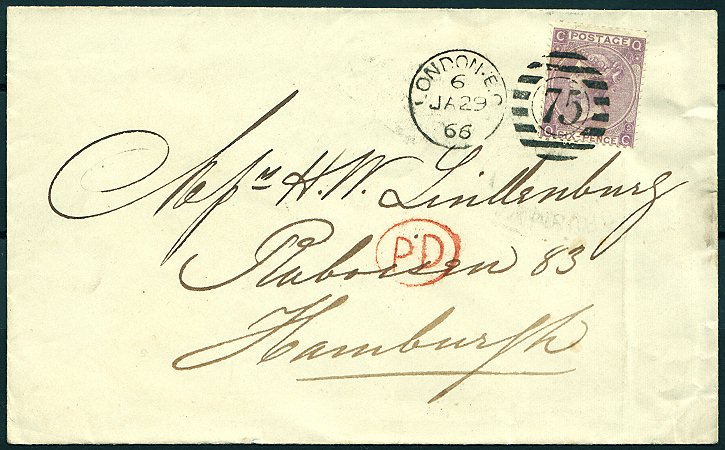 C POSTAGE Q
LONDON·E.C
6
JA 29
66
75
Q SIX PENCE C
Messrs H. W. Lindenburg
PD
Raboisen 83
Hamburgh